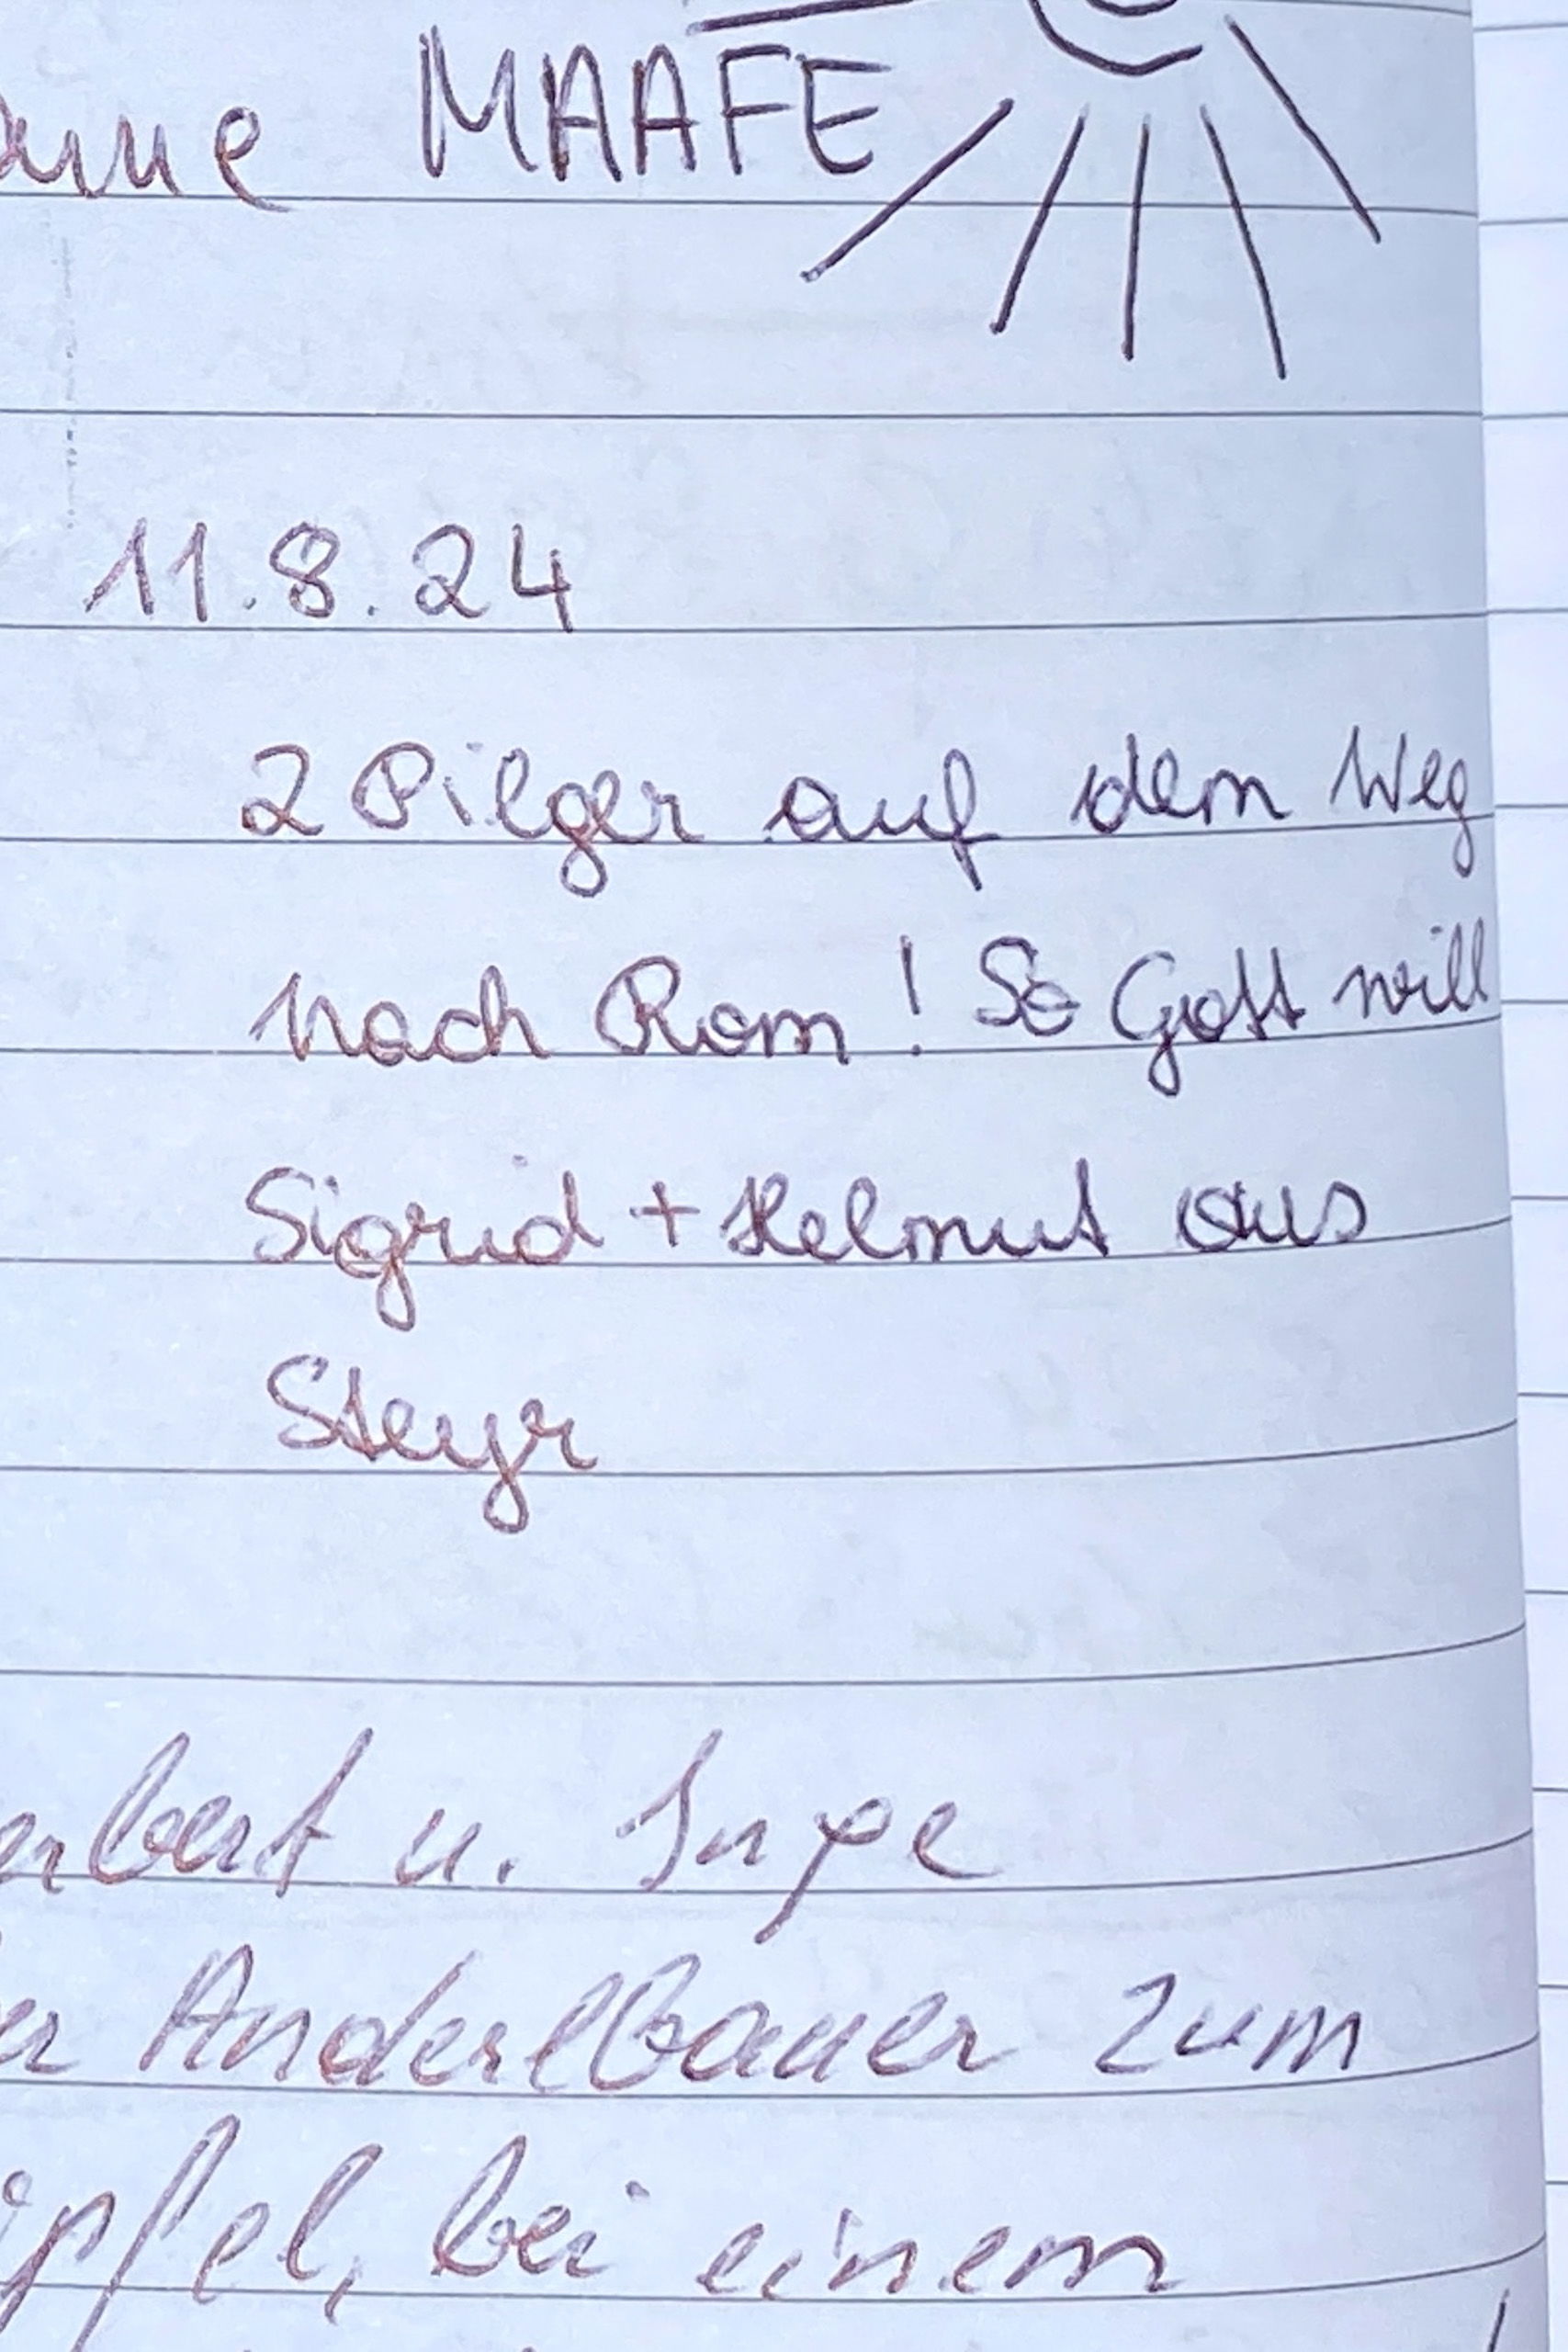 MAAFE
11.8.24
2 Pilger auf dem Weg
nach Rom! So Gott will
Sigrid + Helmut aus
Steyr
erbert u. Inge
er Anderlbauer zum
ipfel, bei einem